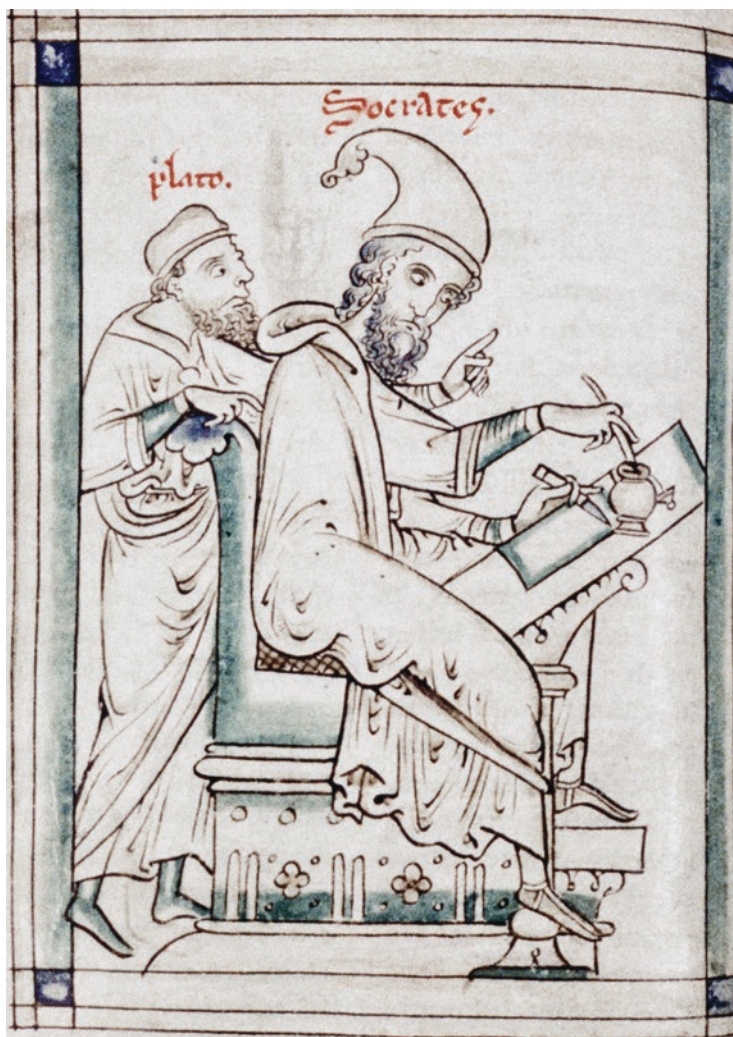 Socrates.
plato.